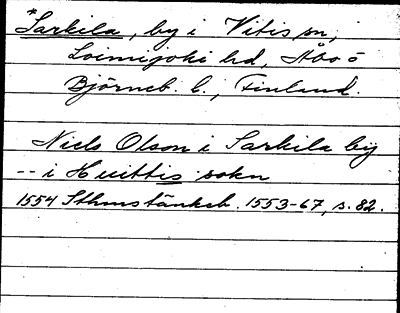 *Sarkila, by i Vitis sn,
Loimijoki hd, Åbo o
Björneb. l., Finland.
Niels Olson i Sarkila by
-- i Huittis sokn
1554 Sthms tänkeb. 1553-67, s. 82.